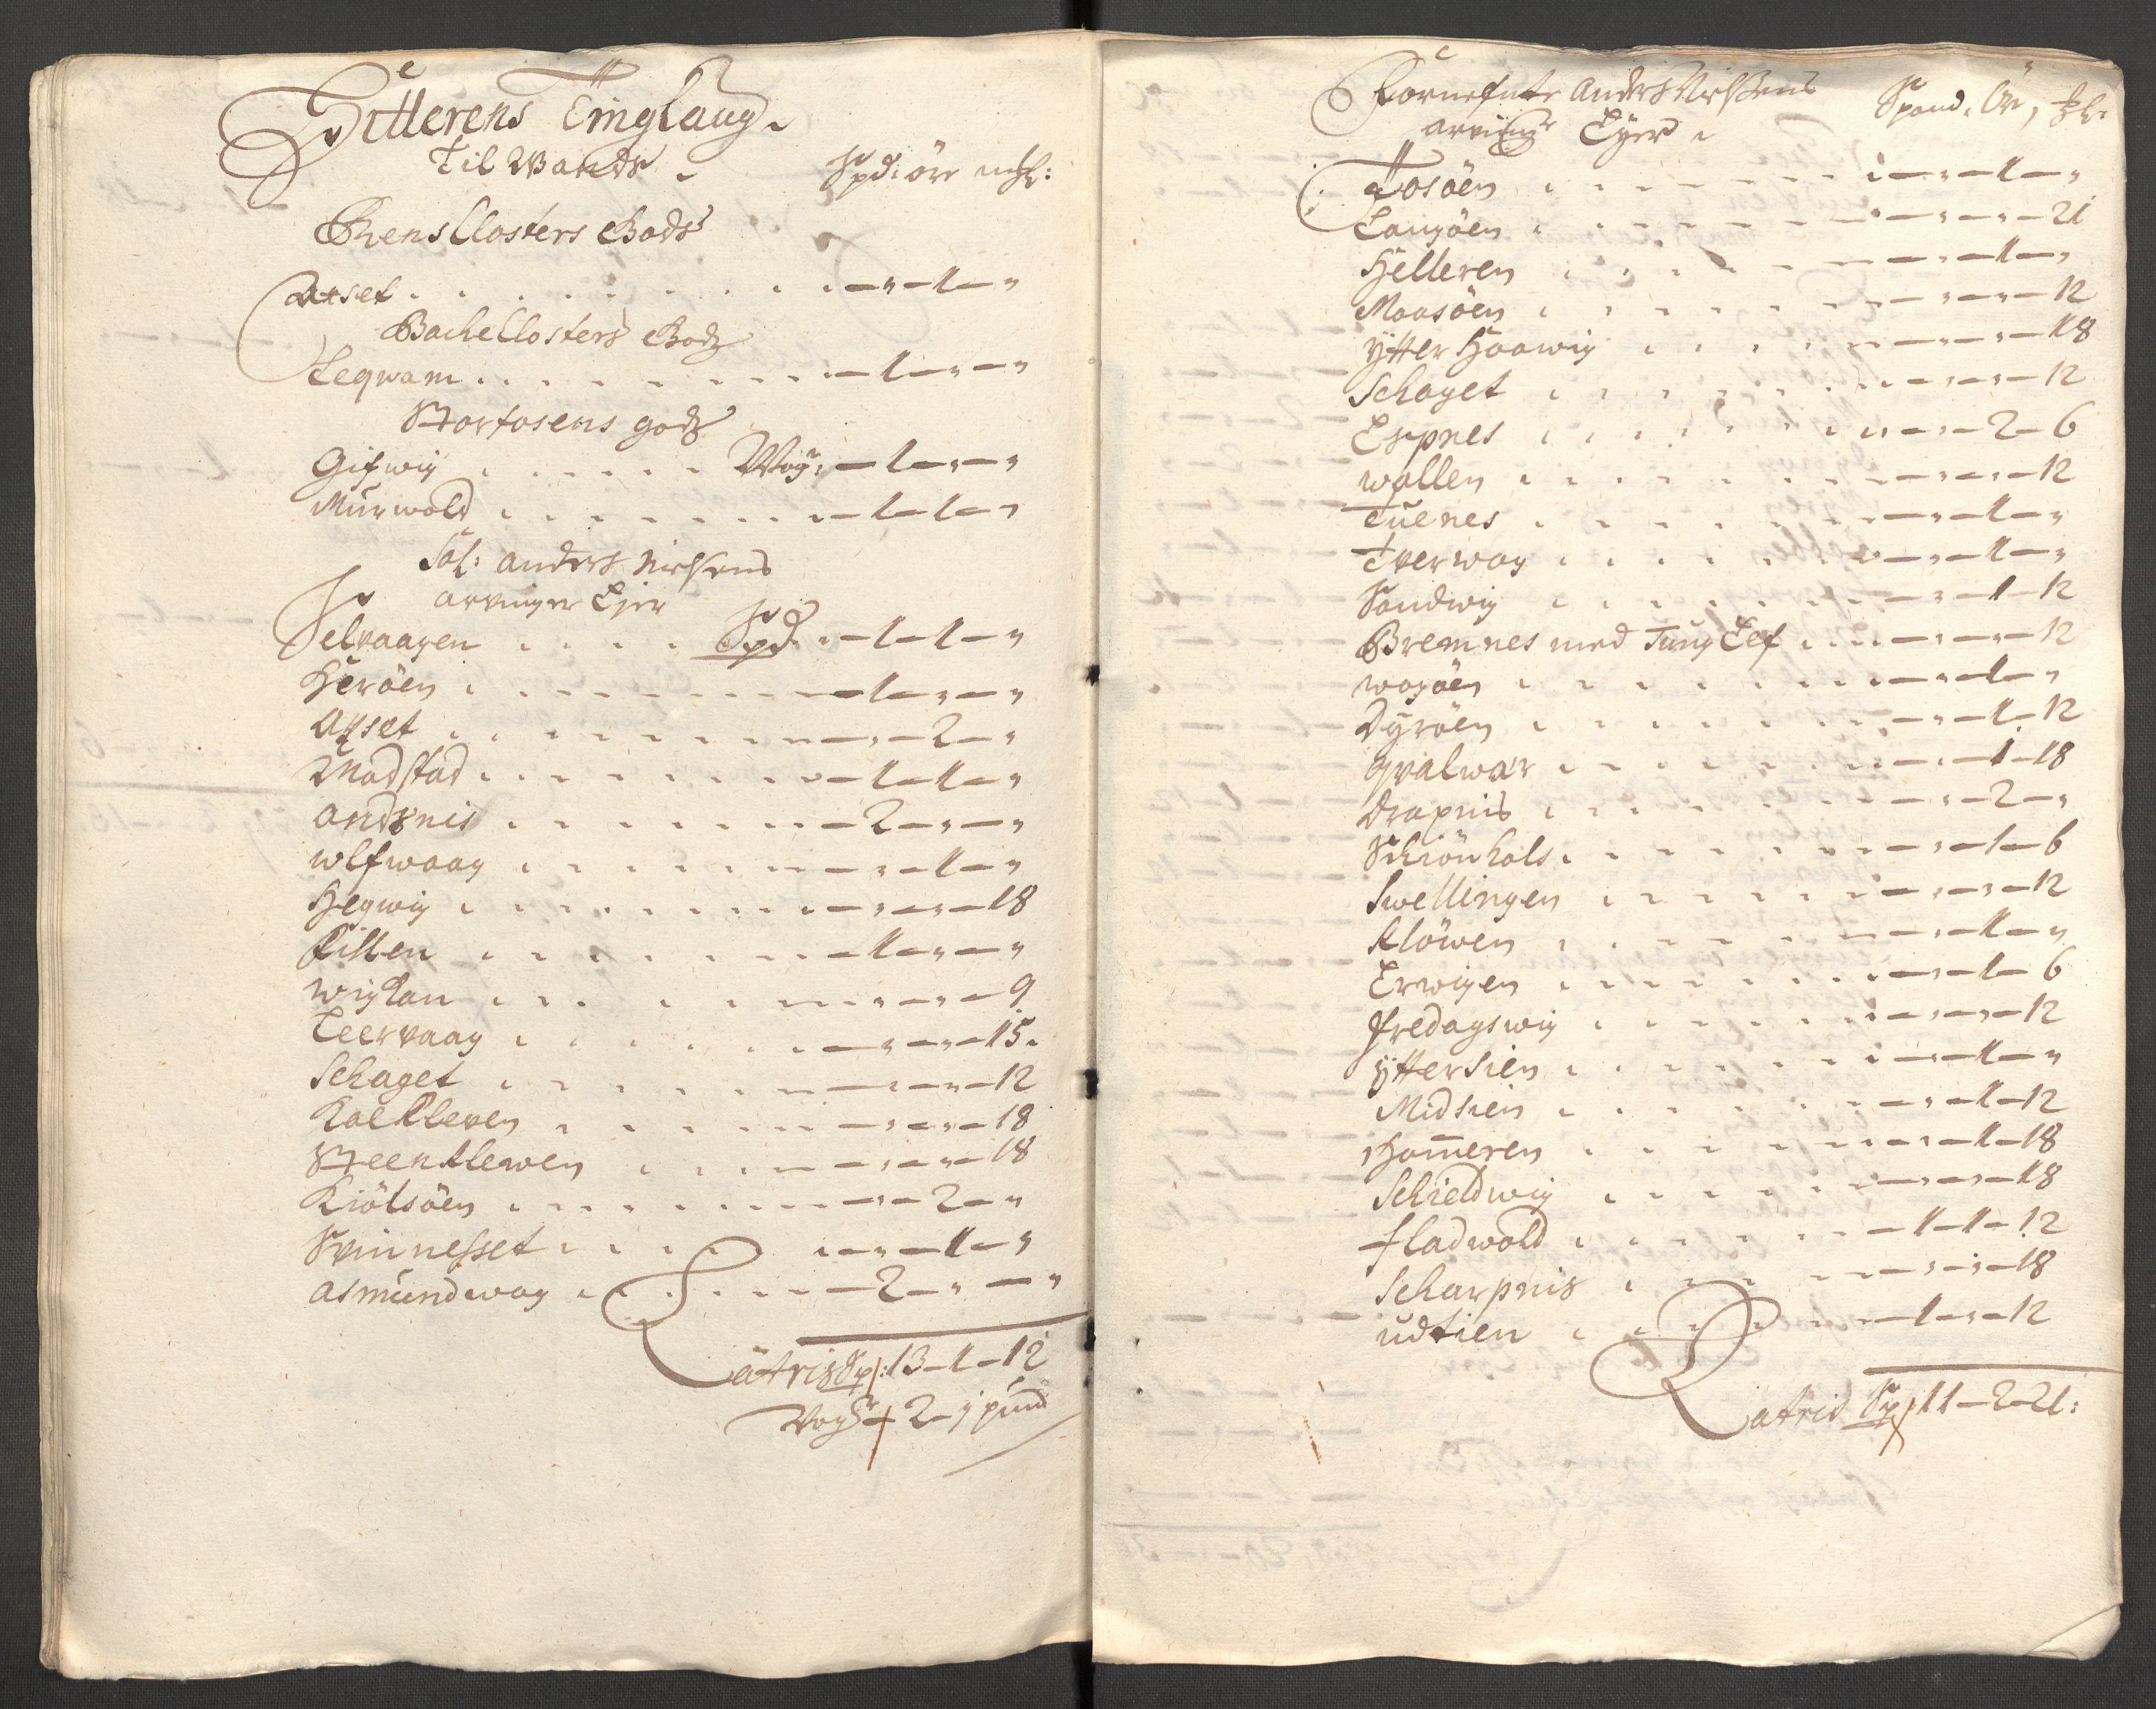 Hitterens Tinglaug
Til Wands Spd: öre mkl:
Rhens Closters Bods
Atset - " - 1 - "
Bache Closters Bodz
Leqvam - 1 - " - "
Stortosens godz
Gifwig Wog: - 1 - " - "
Murwold - 1 - 1 - "
Sal: Anders Nielsens
arvinger Ejer
Selvaagen Spd - 1 - 1 - "
Heröen - 1 - " - "
Atset - " - 2 - "
Madstad - 1 - 1 - "
Andsnis - 2 - " - "
wlfwaag - " - 1 - "
Hegwig - " - " - 18
Fillen - 1 - " - "
wighan - " - " - 9
Leervaag - " - " - 15
Schaget - " - " - 12
Kalkleven - " - " - 18
Steenklewen - " - " - 18
Kiölsöen - " - 2 - "
Svinnesset - " - 1 - "
Asmundwog - 2 - " - "
Latris Sp: 13 - 1 - 12
Vogr - 2 - j pund
Fornefnte Anders Nielsens Spand, Ör, kl:
arvinger Eyer
Fosöen - " - 1 - "
Langöen - " - " - 21
Helleren - " - 1 - "
Maasöen - " - " - 12
ytter Haawig - " - " - 18
Schaget - " - " - 12
Espnes - " - 2 - 6
wallen - " - " - 12
Tuenes - " - 1 - "
Tverwog - " - 1 - "
Sandwig - " - 1 - 12
Bremnes med Tung Lef - " - " - 12
wogöen - " - 1 - "
Dyröen - " - 1 - 12
Qvalwær - " - 1 - 18
Drapnis - " - 2 - "
Schiönhals - " - 1 - 6
Swellingen - " - " - 12
Klöwen - " - 1 - "
Erwigen - " - 1 - 6
fredagswig - " - " - 12
yttersien - " - 1 - "
Midsien - " - 1 - 12
Hameren - " - 1 - 18
Schieldwig - " - " - 18
fladwold - 1 - 1 - 12
Scharpnis - " - " - 18
udtien - 1 - " - 12
Latris Sp 11 - 2 - 21: